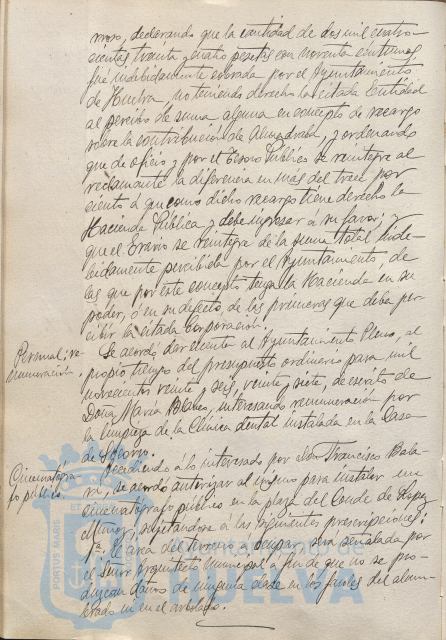 rroso, declarando que la cantidad de dos mil cuatro-
cientas treinta y cuatro pesetas con noventa centimos
fué indebidamente cobrada por el Ayuntamiento
de Huelva, no teniendo derecho la citada Entidad
al percibo de suma alguna en concepto de recargo
sobre la contribución de Almadraba, y ordenando
que de oficio y por el Tesoro Público se reintegre al
reclamante la diferencia en más del trece por
ciento á que como dicho recargo tiene derecho la
Hacienda Pública y debe ingresar á su favor; y
que el Erario se reintegre de la suma total inde-
bidamente percibida por el Ayuntamiento de
las que por este concepto tenga la Hacienda en su
poder, ó en su defecto, de las primeras que deba per-
cibir la citada Corporación.
Personal; re-
muneración.
Se acordó dar cuenta al Ayuntamiento Pleno, al
propio tiempo del presupuesto ordinario para mil
novecientos veinte y seis, veinte y siete, de escrito de
Doña María Blanco, interesando remuneración por
la limpieza de la Clínica dental instalada en la Casa
de Socorro.
Cinematógra-
fo público.
Accediendo á lo interesado por Don Francisco
se acordó autorizar al mismo para instalar un
cinematógrafo público en la plaza del Conde de López
Muñoz, sujetándose á las siguientes prescripciones:
1ª. el área del terreno á ocupar será señalada por
el Señor Arquitecto municipal á fin de que no se pro-
duzcan daños de ninguna clase en los faroles del alum-
brado ni en el arbolado.
PORTUS MARIS ET
Ayuntamiento de
HUELVA